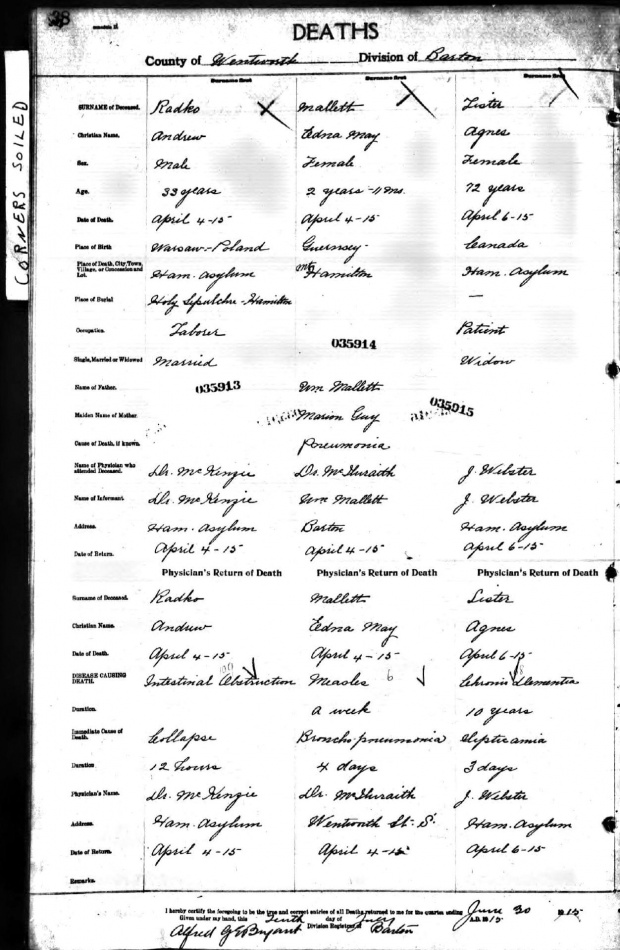 38
DEATHS
County of Wentworth Division of Barton
Surname first Surname first Surname first
SURNAME of Deceased. Radko Mallett Lister
Christian Name. Andrew Edna May Agnes
Sex. Male Female Female
Age. 33 years 2 years - 11 ms. 72 years
Date of Death. April 4-15 April 4-15 April 6-15
Place of Birth Warsaw - Poland Guernsey - Canada
Place of Death, City, Town, Village, or Concession and Lot. Ham. Asylum Mt Hamilton Ham. Asylum
Place of Burial Holy Sepulchre - Hamilton —
Occupation. Laborer Patient
035914
Single, Married or Widowed Married Widow
Name of Father. 035913 Wm Mallett
035915
Maiden Name of Mother. Marion Guy
Cause of Death, if known. Pneumonia
Name of Physician who attended Deceased. Dr. McKenzie Dr. McIlwraith J. Webster
Name of Informant. Dr. McKenzie Wm Mallett J. Webster
Address. Ham. Asylum Barton Ham. Asylum
Date of Return. April 4-15 April 4-15 April 6-15
Physician's Return of Death Physician's Return of Death Physician's Return of Death
Surname of Deceased. Radko Mallett Lister
Christian Name. Andrew Edna May Agnes
Date of Death. April 4-15 April 4-15 April 6-15
DISEASE CAUSING DEATH. Intestinal Obstruction Measles 6 Chronic Dementia
Duration. a week 10 years
Immediate Cause of Death. Collapse Broncho pneumonia Septicamia
Duration 12 hours 4 days 3 days
Physician's Name. Dr. McKenzie Dr. McIlwraith J. Webster
Address. Ham. Asylum Wentworth St. S. Ham. Asylum
Date of Return. April 4-15 April 4-15 April 6-15
Remarks.
I hereby certify the foregoing to be the true and correct entries of all Deaths returned to me for the quarter ending June 30 1915
Given under my hand, this Tenth day of July A.D. 1915
Alfred G E Bryant Division Registrar of Barton
CORNERS SOILED